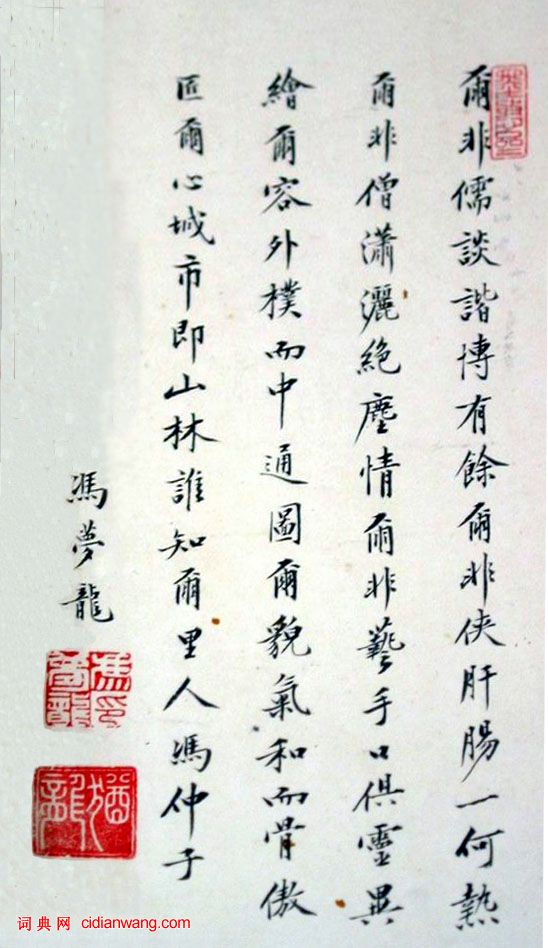 爾非儒談諧博有餘爾非俠肝腸一何熱
爾非僧瀟灑絕塵情爾非藝手口俱靈異
繪爾容外樸而中通圖爾貌氣和而骨傲
匠爾心城市即山林誰知爾里人馮仲子
馮夢龍
馮夢龍印
猶龍
词典网 cidianwang.com